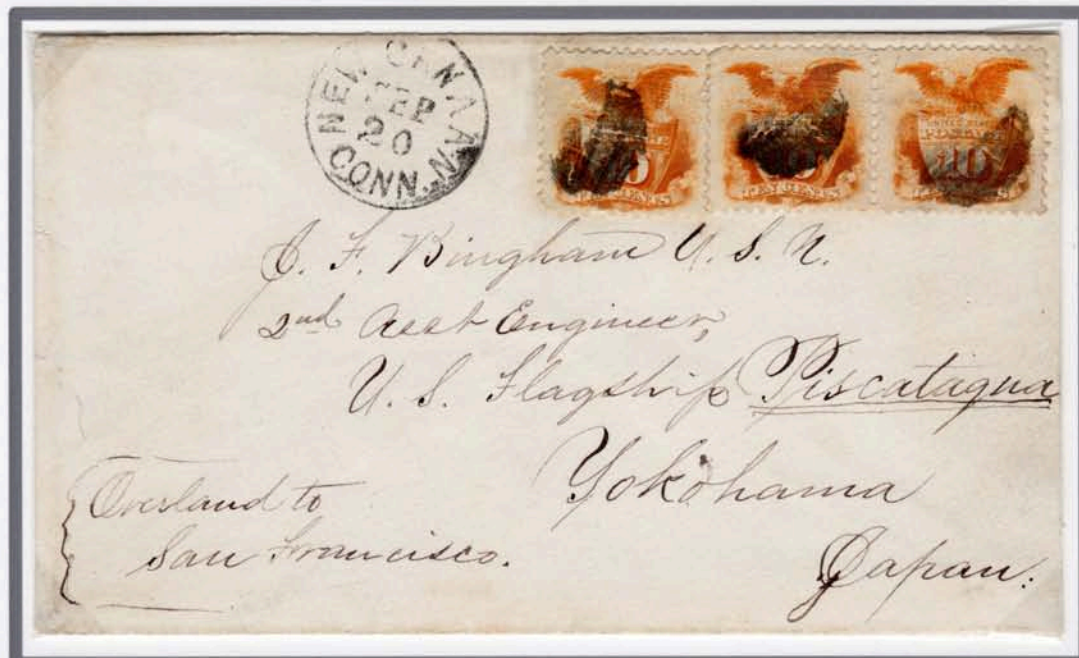 NEW CANAAN
SEP
20
CONN.
UNITED STATES
POSTAGE
10
TEN CENTS
TEN CENTS
TEN CENTS
J. F. Bingham U. S. N.
2nd Asst Engineer,
U. S. Flagship Piscataqua
Yokohama
Japan.
Overland to
San Francisco.